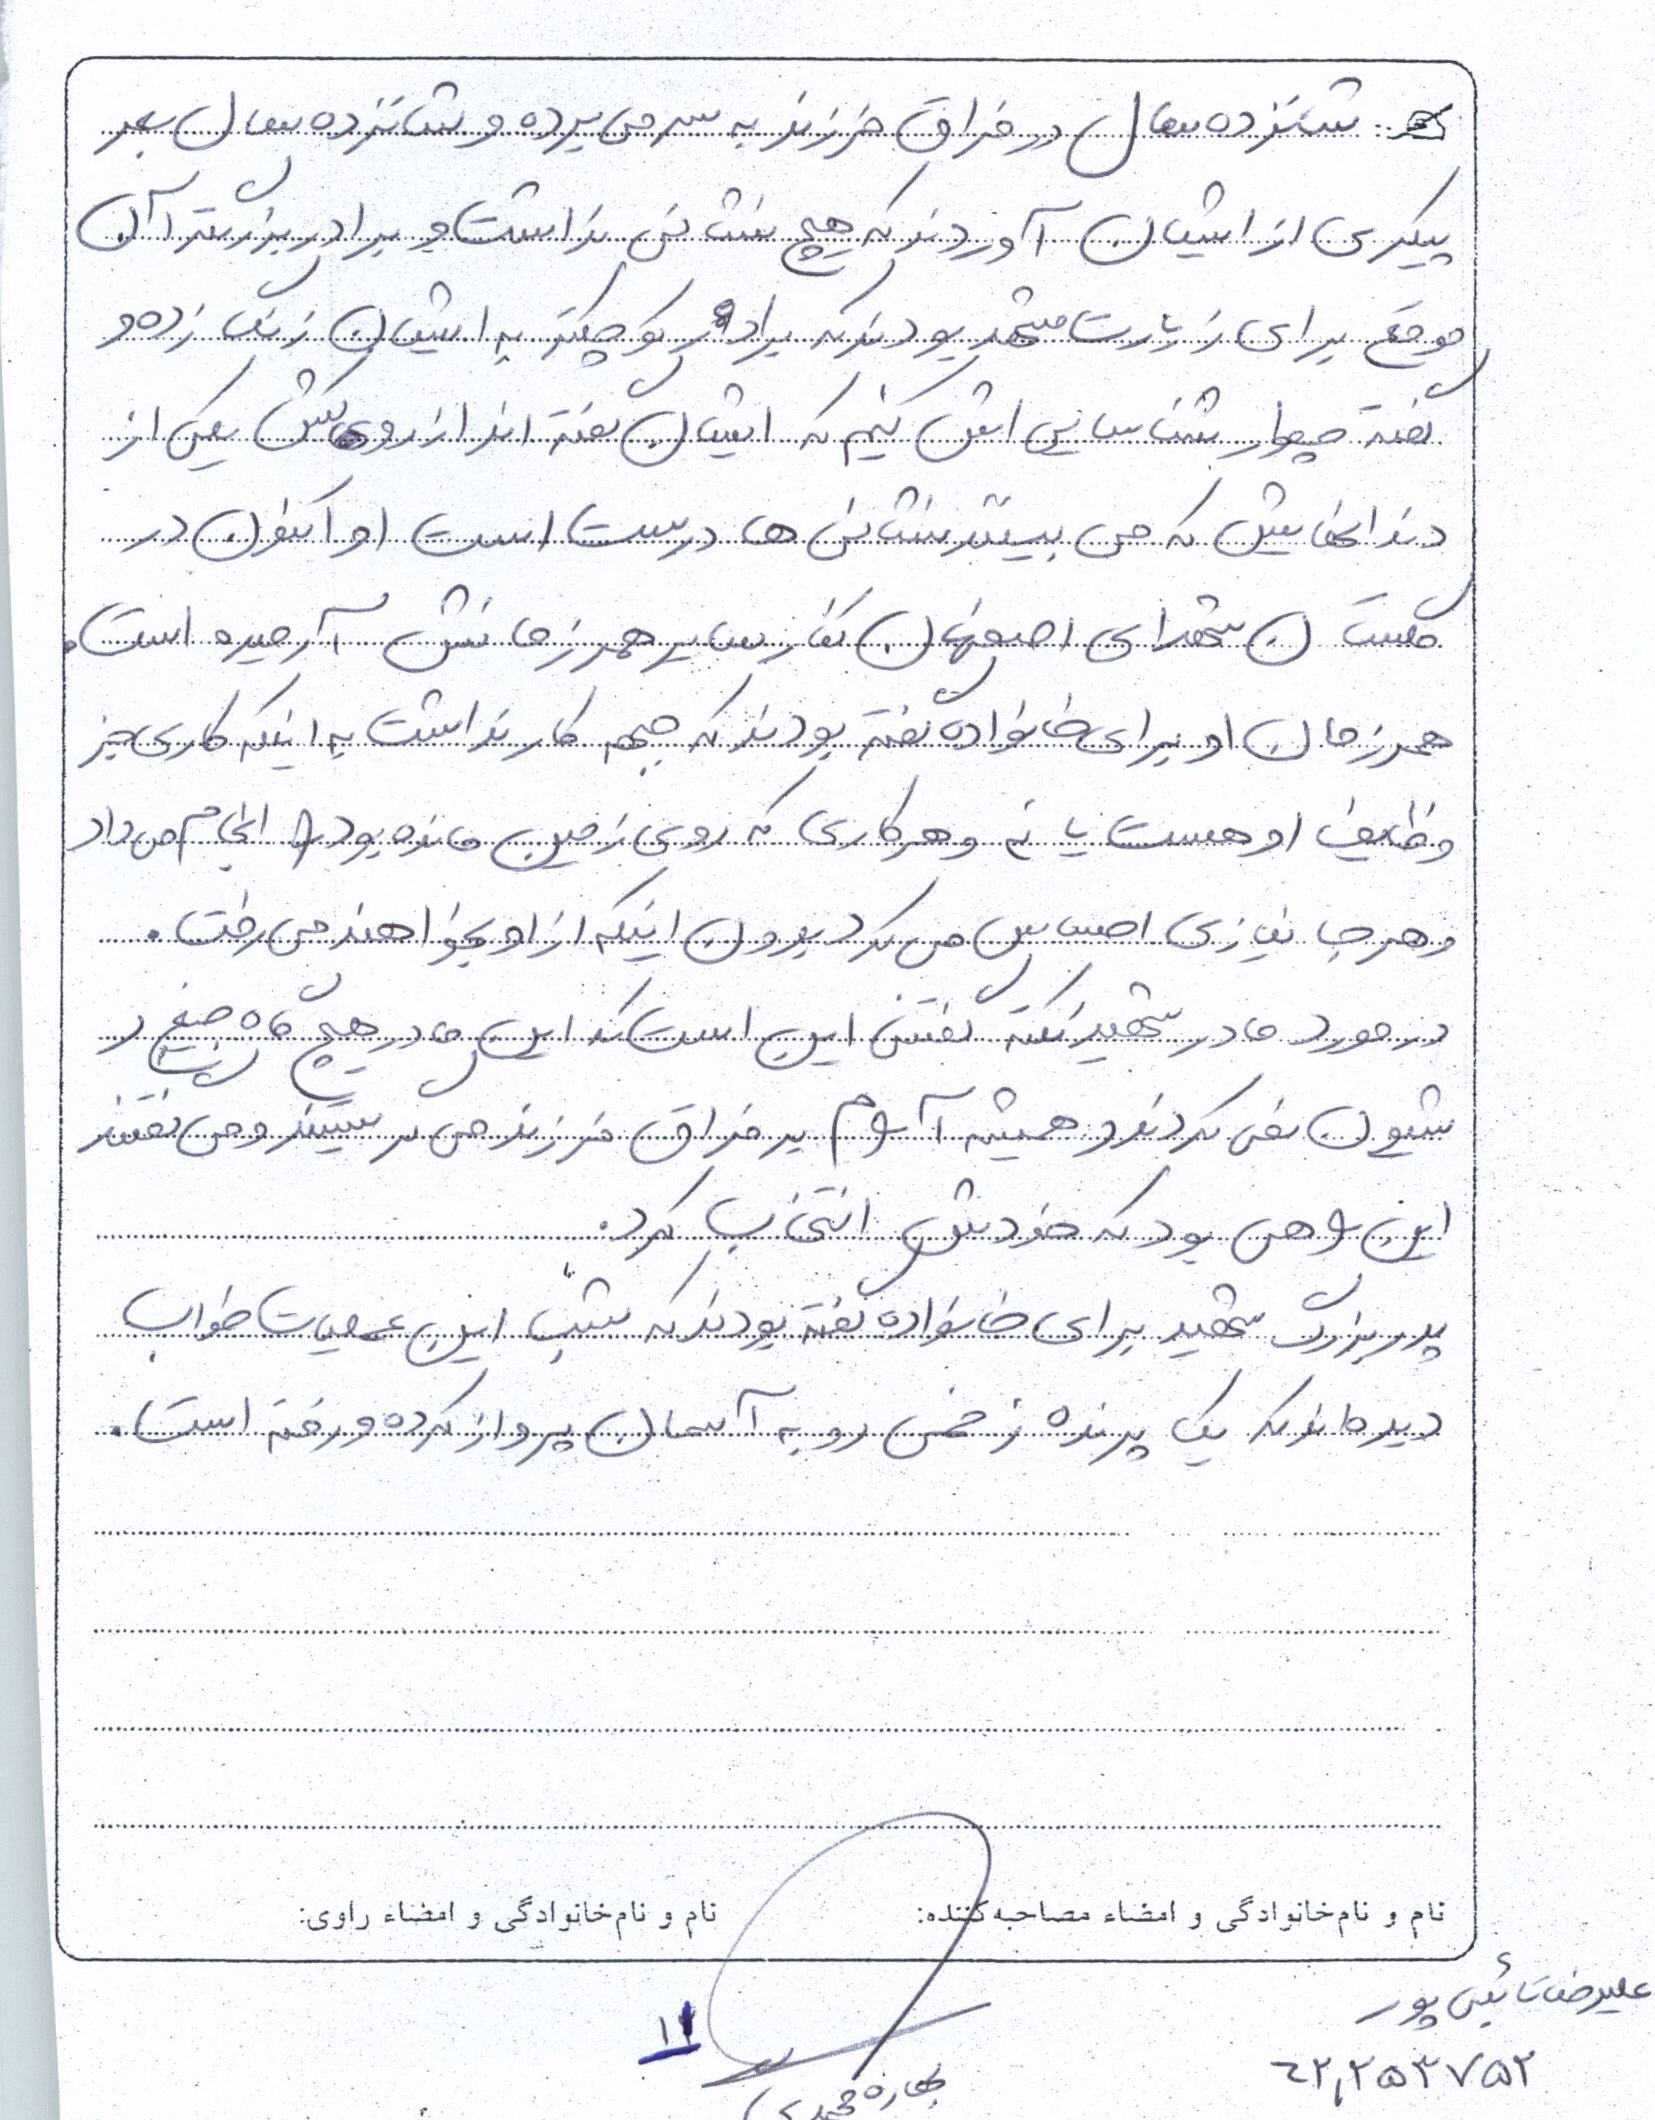 شانزده سال در فراق فرزند به سر می برده و شانزده سال بعد
پیکری از ایشان آوردند که هیچ نشانی نداشت و برادر بزرگتر آن
موقع برای زیارت مشهد بودند که برادر کوچکتر به ایشان زنگ زده و
گفته چطور شناسایی اش کنیم که ایشان گفته اند از روی یکی از
دندانهایش که می بینند نشانی ها درست است او اکنون در
گلستان شهدای اصفهان کنار سایر همرزمانش آرمیده است.
همرزمان او برای خانواده گفته بودند که جبهه کار نداشت به اینکه کاری جز
وظایف او هست یا نه و هر کاری که روی زمین مانده بود را انجام می داد
و هر جا نیازی احساس می کرد بدون اینکه از او بخواهند می رفت.
در مورد مادر شهید نکته گفتنی این است که این مادر هیچ گاه ضجه و
شیون نمی کردند و همیشه آرام بر فراق فرزند می گریستند و می گفتند
این راهی بود که خودش انتخاب کرد.
پدر بزرگ شهید برای خانواده گفته بودند که شب این عملیات خواب
دیده اند که یک پرنده زخمی رو به آسمان پرواز کرده و رفته است.
نام و نام‌خانوادگی و امضاء مصاحبه‌کننده: نام و نام‌خانوادگی و امضاء راوی:
علیرضا تائبی پور
۱۱
بهاره محمدی